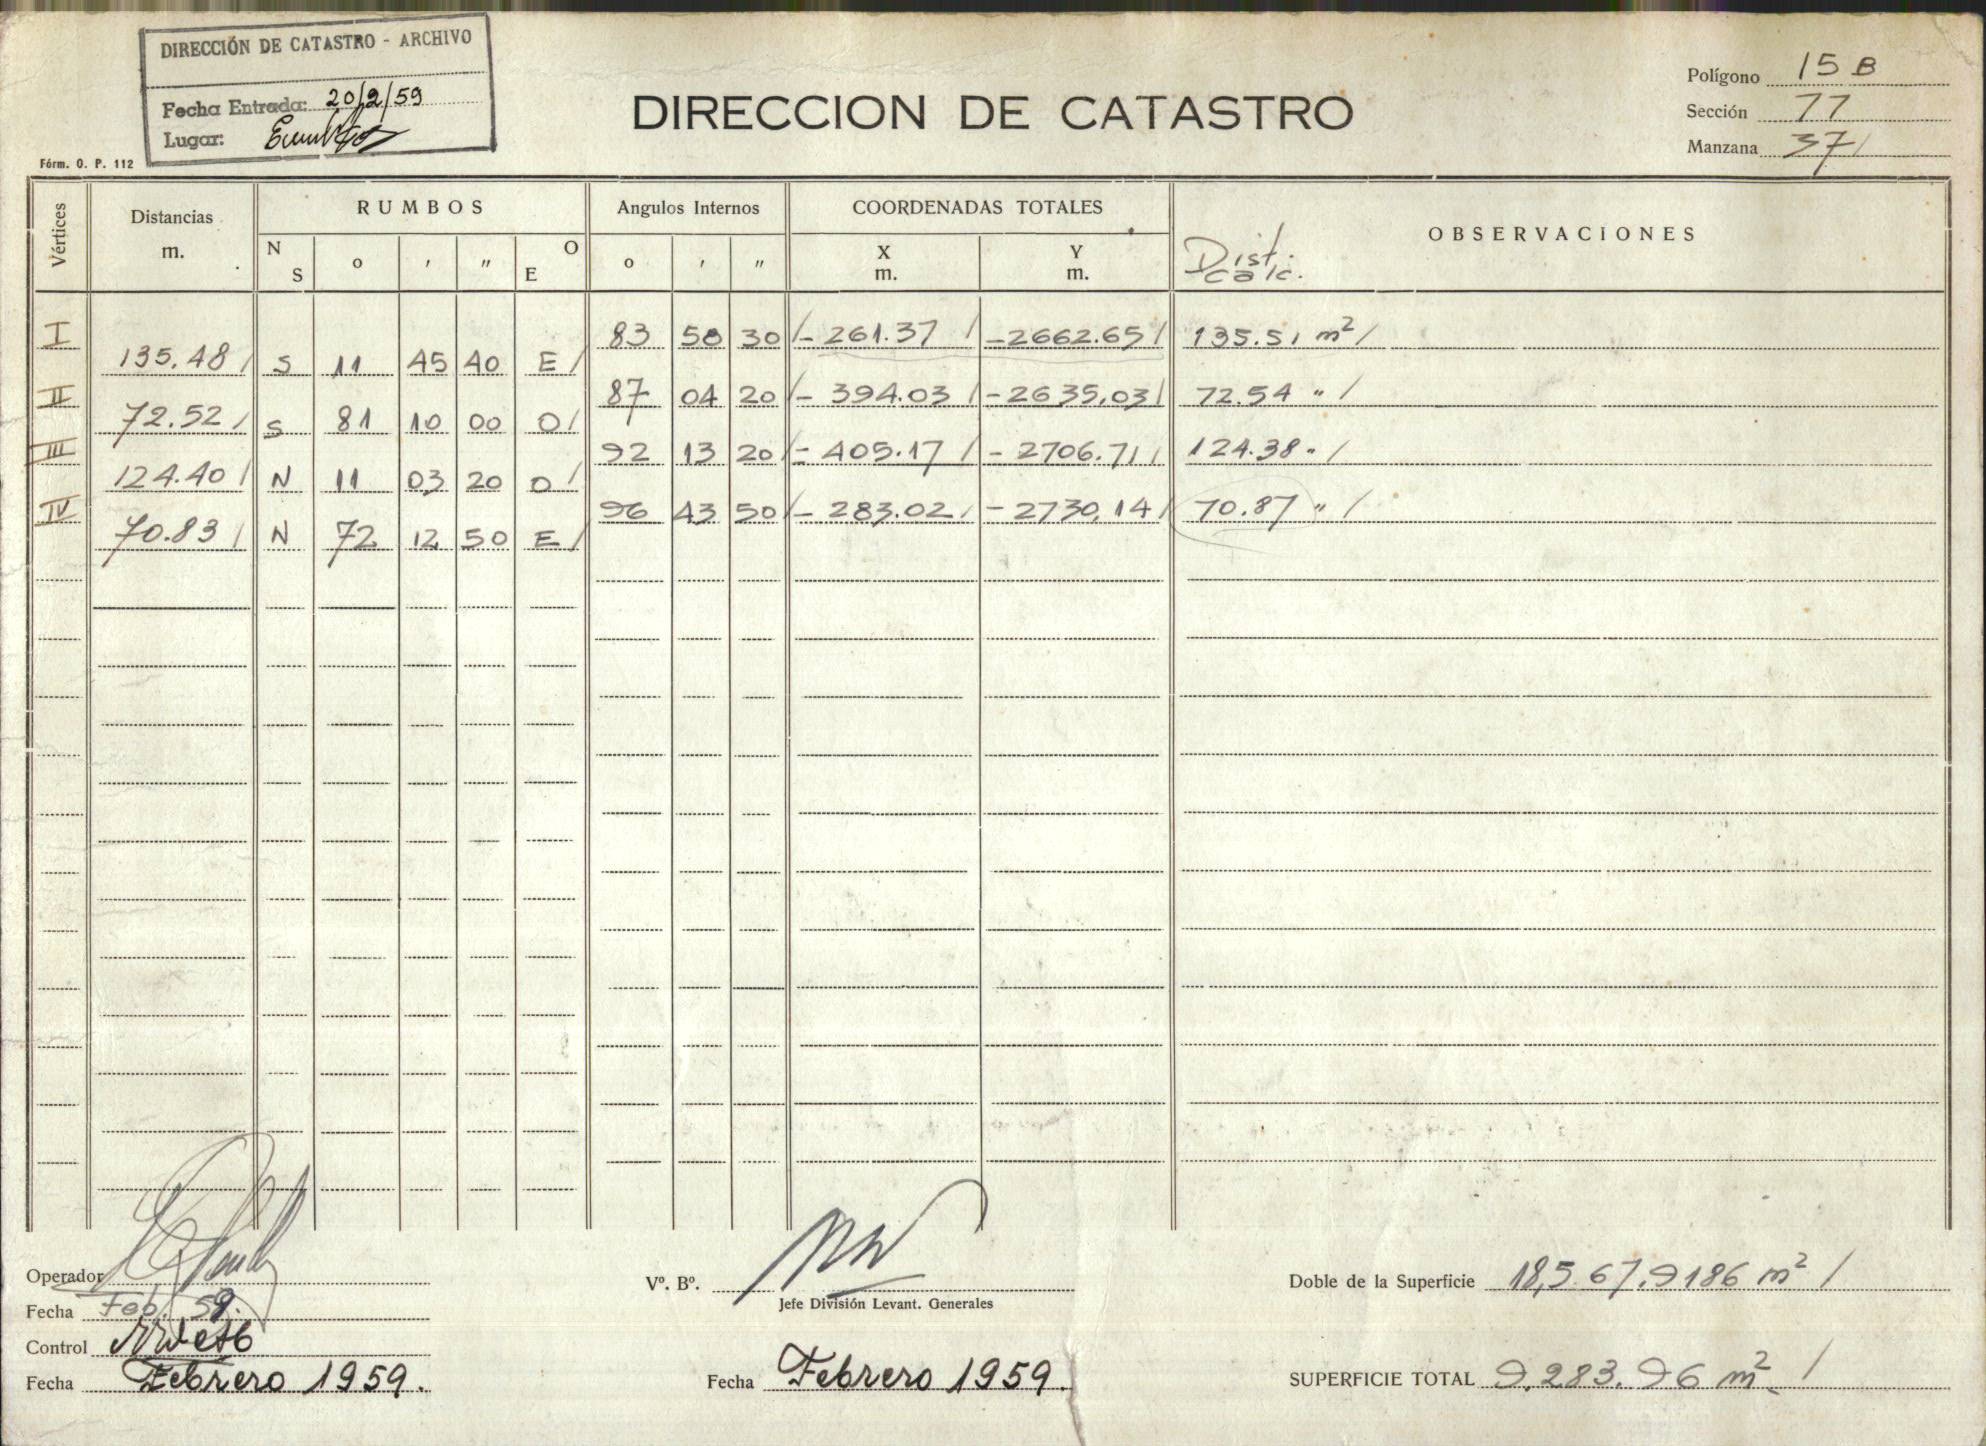 DIRECCIÓN DE CATASTRO - ARCHIVO
Fecha Entrada: 20/2/59
Lugar:
Fórm. O. P. 112
DIRECCION DE CATASTRO
Polígono 15 B
Sección 77
Manzana 37/
Vértices
Distancias m.
RUMBOS
N S o ' " O E
Angulos Internos
o ' "
COORDENADAS TOTALES
X m. Y m.
OBSERVACIONES
Dist. calc.
I 83 50 30 /- 261.37 / -2662.65/ 135.51 m² /
135.48 / S 11 45 40 E /
II 87 04 20 /- 394.03 / -2635,03/ 72.54 " /
72.52 / S 81 10 00 O /
III 92 13 20 /- 405.17 / - 2706.71 / 124.38 " /
124.40 / N 11 03 20 O /
IV 96 43 50 /- 283.02 / - 2730,14 / 70.87 " /
70.83 / N 72 12 50 E /
Operador
Fecha Feb. 59.
Control
Fecha Febrero 1959.
Vº. Bº.
Jefe División Levant. Generales
Fecha Febrero 1959.
Doble de la Superficie 18,567.9186 m² /
SUPERFICIE TOTAL 9.283.96 m². /